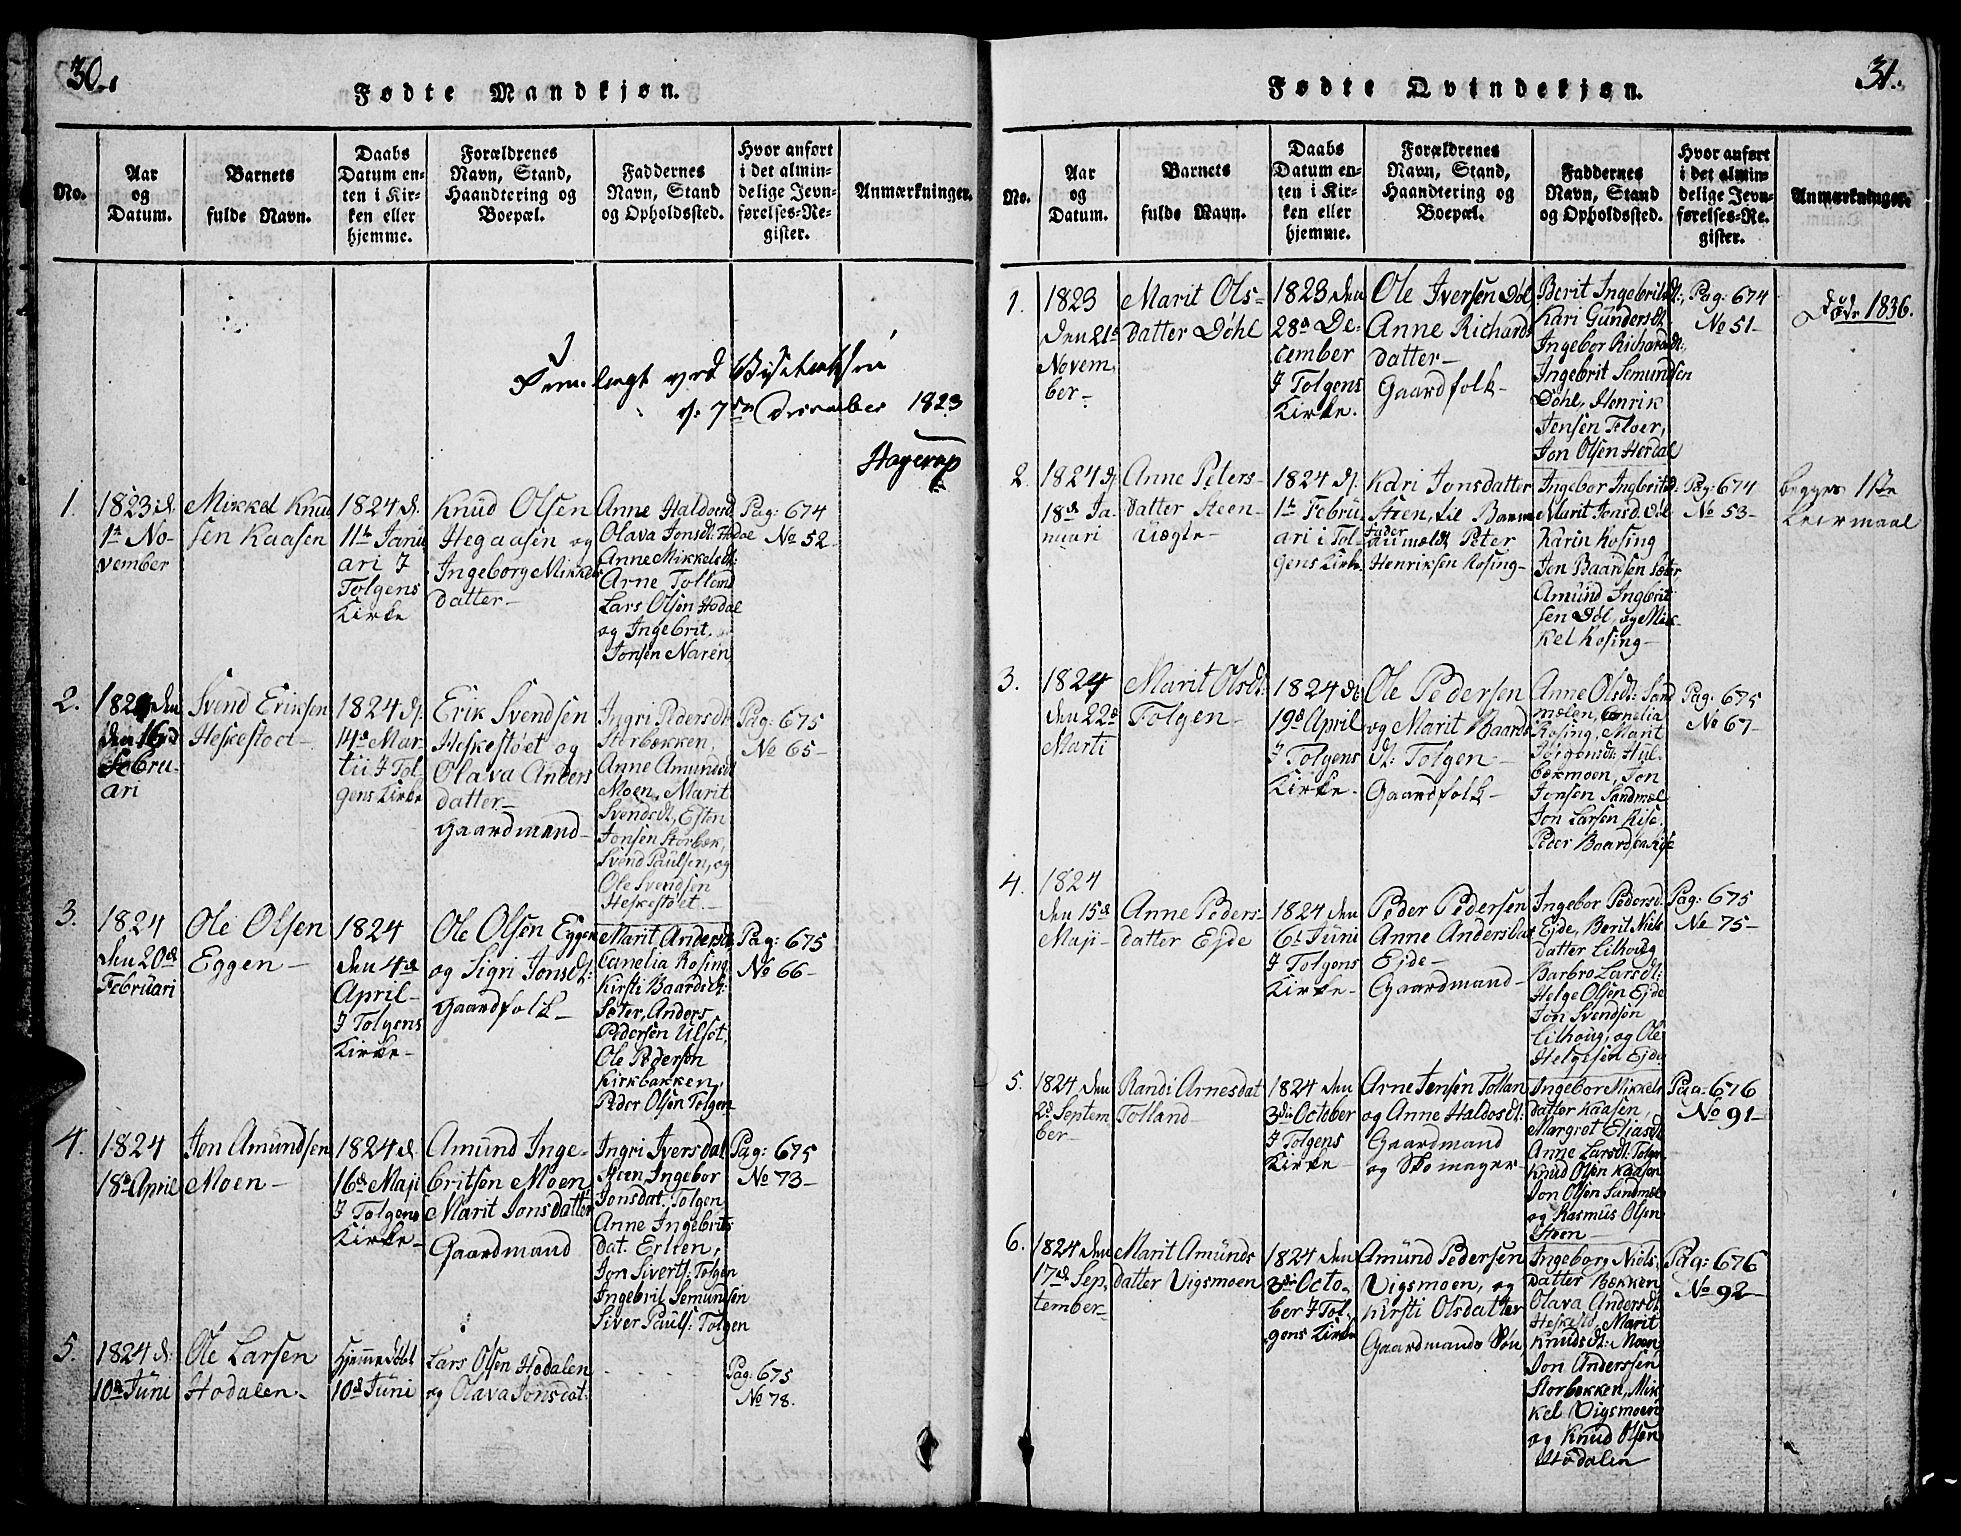 30.
Fødte Mandkjøn.
No.
Aar
og
Datum.
Barnets
fulde Navn.
Daabs
Datum en-
ten i Kir-
ken eller
hjemme.
Forældrenes
Navn, Stand,
Haandtering og
Boepæl.
Faddernes
Navn, Stand
og Opholdssted.
Hvor anført
i det almin-
delige Jevn-
førelses-Re-
gister.
Anmærkninger.
1823
Hagerup
1.
1823 d.
1te No-
vember
Mikkel Knud
sen Kaasen
1824 d.
11te Janu
ari I
Tolgens
Kirke
Knud Olsen
Hegaasen og
Ingeborg Mikkels
datter
Anne Haldosd
Olava Jonsdt: Hodal
Anne Mikkelsdt:
Arne Tolland
Lars Olsen Hodal
og Ingebrit
Jonsen Naren
Pag: 674
No 52
2.
Febru-
ari
Svend Eriksen
Heskestoet
1824 d.
14de Mar-
tii I Tol-
gens Kirke
Erik Svendsen
Heskestøet og
Olava Anders
datter
Gaardmand
Ingri Pedersdt:
Storbækken,
Anne Amundsdt
Moen, Marit
Svendsdt, Esten
Jonsen Storbæk,
Svend Paulsen, og
Ole Svendsen
Heskestøet
Pag: 675
No 65
3.
1824
den 20de
Februari
Ole Olsen
Eggen
1824
den 4de
April
I Tolgens
Kirke
Ole Olsen Eggen
og Sigri Jonsdt:
Gaardfolk
Marit Andersdt
Canelia Rosing
Kirsti Baardsdt:
Sæter, Anders
Pedersen Ulset,
Ole Pedersen
Kirkbakken,
Peder Olsen Tolgen
Pag: 675
No 66
4.
1824
18de April
Jon Amundsen
Moen
1824 d.
16de Maji
I Tolgens
Kirke
Amund Inge-
britsen Moen
Marit Jonsdatter
Gaardmand
Ingri Iversdat
Steen, Ingebor
Jonsdat, Tolgen
Anne Ingebrits
dat. Erlien,
Jon Siverts: Tolgen
Ingebril Semundsen
Siver Pauls: Tolgen
Pag: 675
No 73
5.
1824 d.
10de Juni
Ole Larsen
Hodalen
Hjemmedøbt
10de Juni
Lars Olsen Hodalen
og Olava Jonsdat:
Pag: 675
No 78.
31.
Fødte Qvindekjøn.
No.
Aar
og
Datum.
Barnets
fulde Navn.
Daabs
Datum en-
ten i Kir-
ken eller
hjemme.
Forældrenes
Navn, Stand,
Haandtering og
Boepæl.
Faddernes
Navn, Stand
og Opholdssted.
Hvor anført
i det almin-
delige Jevn-
førelses-Re-
gister.
Anmærkninger.
1.
1823
den 21de
Novem
ber
Marit Ols-
datter Døhl
1823 den
28de De-
cember
I Tolgens
Kirke.
Ole Iversen Døl
Anne Richards
datter
Gaardfolk
Berit Ingebritsdt:,
Kari Gundersdt
Ingebor Richardsdt:,
Ingebrit Semundsen
Døhl, Henrik
Jensen Floer,
Jon Olsen Hordal
Pag: 674
No 51
Døde 1836.
2.
1824 d.
18de Ja-
nuari
Anne Peters-
datter Steen-
1824 d.
1te Febru-
ari i Tol-
gens Kirke
Kari Jonsdatter
Steen, til Barne
Fader
anmeldt Peter
Henriksen Rosing
Ingebor Ingbritsd:
Marit Jensd. Døl
Karin Rosing
Jon Baardsen Sæter
Amund Ingbrit
sen Døl, og Mik-
kel Rosing
Pag: 674
No 53
begges 1ste
Leiermaal
3.
1824
den 22de
Marti
Marit Olsdt:
Tolgen
1824 d.
19de April
I Tolgens
Kirke
Ole Pedersen
og Marit Baards
dt: Tolgen
Gaardfolk
Anne Olsdt: Sand
mælen, Cornelia
Rosing, Marit
Jørgensdt: Hul-
bækmoen, Jon
Jonsen Sandmæl
Jon Larsen Kise
Peder Baardsen Kise
Pag: 675
No 67
4.
1824
den 15de
Maji
Anne Peders-
datter Ejde
1824 den
6te Juni
I Tolgens
Kirke
Peder Pedersen
Anne Andersdat
Ejde
Gaardmand
Ingebor Pedersd:
Ejde, Berit Niels
datter Lilhoug
Barbro Larsdt:
Helge Olsen Ejde
Jon Svendsen
Lilhoug, og Ole
Helgesen Ejde
Pag: 675
No 75
5.
1824 den
2de Septem
ber
Randi Arnesdat
Tolland
1824 den
3die October
I Tolgens
Kirke
Arne Jensen Tollan
og Anne Haldosdt:
Gaardmand
og Skomager
Ingebor Mikkels
datter Kaasen,
Margrot Eliasdt
Anne Larsdt: Tolgen
Knud Olsen Kaasen
Jon Olsen Sandmæl
og Rasmus Olsen
Steen
Pag: 676
No 91
6.
1824 den
17de Sep-
tember
Marit Amunds
datter Vigsmoen
1824 den
3die Octo-
ber I Tol-
gens Kirke
Amund Pedersen
Vigsmoen, og
Kirsti Olsdatter
Gaardmands Søn
Ingeborg Niels
datter Bækken
Olava Andersdt.
Heskestø, Marit
Knudsdt: Moen
Jon Anderssen
Storbekken, Mik
kel Vigsmoen
og Knud Olsen
Hodalen
Pag: 676
No 92